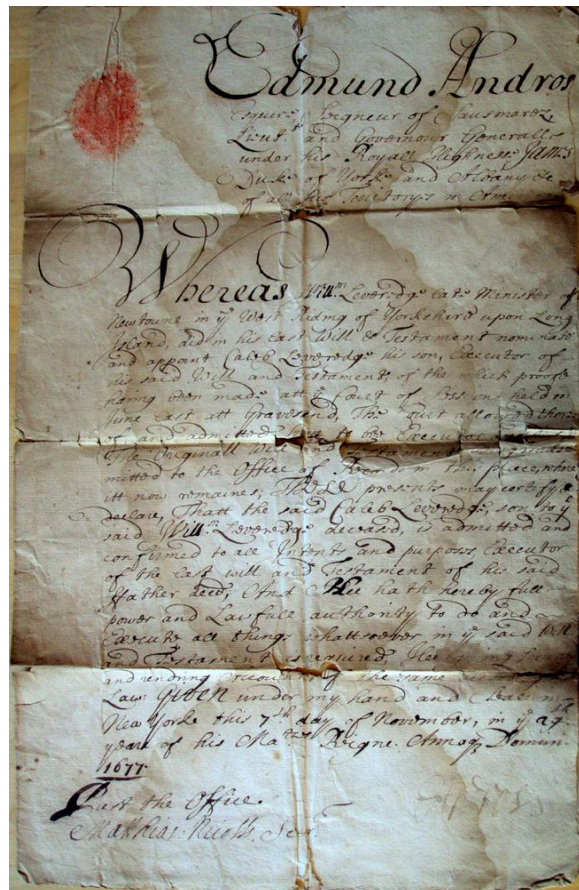 Edmund Andros
Esquire, Seigneur of Sausmarez,
Lieut. and Governour Generall
under his Royall Highnesse James
Duke of Yorke and Albany &c
of all his Territorys in
Whereas Willm. Leveredge late Minister of
Newtowne in ye West Riding of Yorkshire upon Long
Island, did in his last Will & Testament nominate
and appoint Caleb Leveredge his son, Executor of
his said Will and Testament, of the which proofe
having been made att ye Court of Session held in
June last att Gravesend, The Court allowed there
of and admitted him to be Executor
The Originall Will and Testament being
mitted to the Office of Records in this place, where
itt now remaines, These presents may certify &
declare, Thatt the said Caleb Leveredge, son to ye
said Willm. Leveredge deceased, is admitted and
confirmed to all Intents and purposes Executor
of the last will and Testament of his said
ffather decd, And Hee hath hereby full
power and Lawfull authority to do and
Execute all things whattsoever in ye said Will
and Testament is required, Hee
and rendring Account of the same
Law. Given under my hand and Seale in
New Yorke this 7th day of November, in ye 29th
yeare of his Maties Reigne. Annoq Domini
1677.
Past the Office.
Matthias Nicolls, Secr.